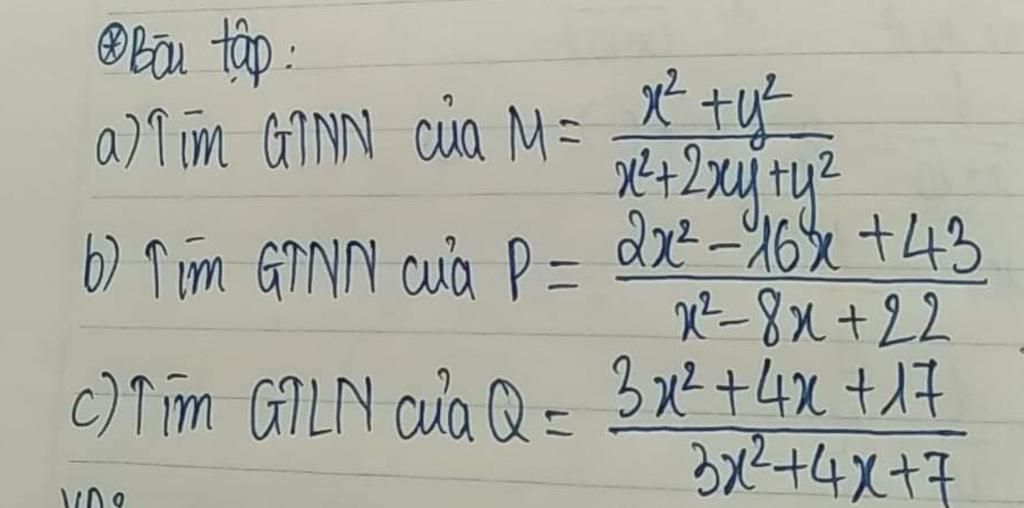 ⊛ Bài tập:
a) Tìm GTNN của M = (x² + y²)/(x² + 2xy + y²)
b) Tìm GTNN của P = (2x² - 16x + 43)/(x² - 8x + 22)
c) Tìm GTLN của Q = (3x² + 4x + 17)/(3x² + 4x + 7)